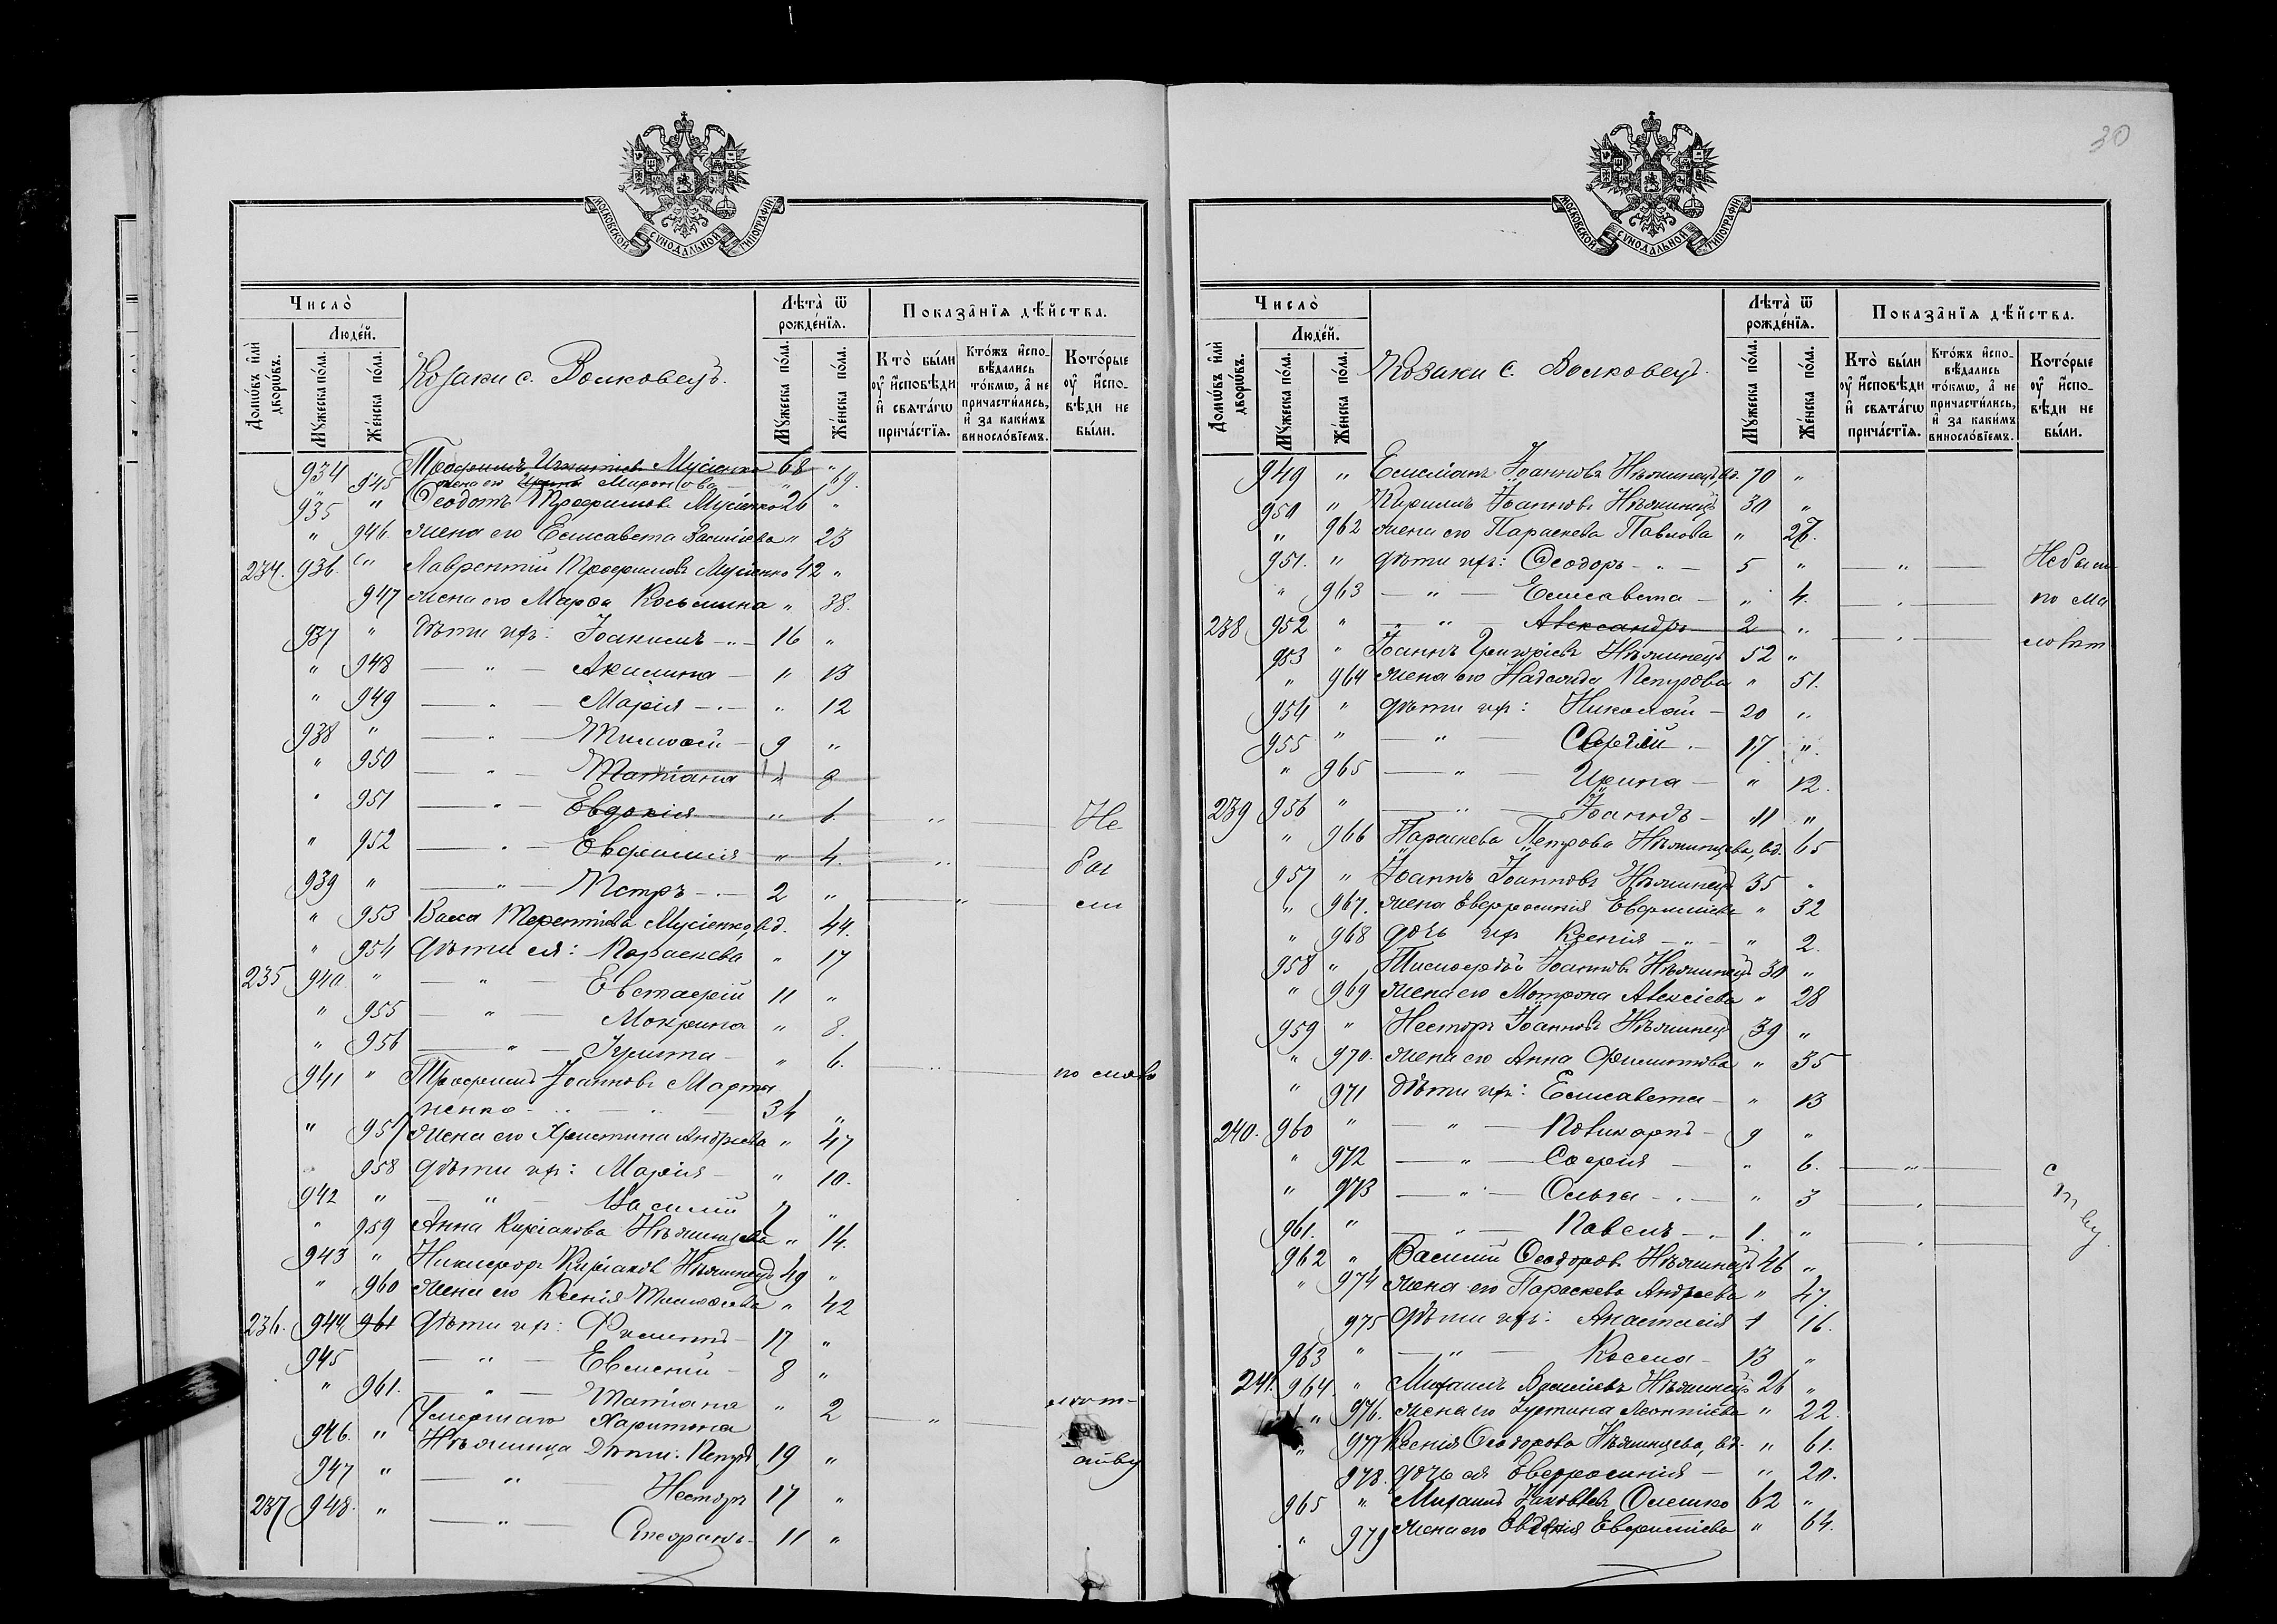 МОСКОВСКОЙ СУНОДАЛЬНОЙ ТИПОГРАФІИ
Число̀
Лѣта̀ ѿ рожде́нїѧ.
Показа̑нїѧ дѣ́йства.
Домѡ́въ и҆лѝ дворѡ́въ.
Люде́й.
Мꙋ́жеска по́ла.
Же́нска по́ла.
Козаки с. Волковец.
Мꙋ́жеска по́ла.
Же́нска по́ла.
Кто̀ бы́ли оу҆ и҆сповѣ́ди и҆ свѧта́гѡ прича́стїѧ.
Кто́жъ и҆спо- вѣ́дались то́кмѡ, а҆ не причасти́лись, и҆ за каки́мъ винослові́емъ.
Кото́рые оу҆ и҆спо- вѣ́ди не бы́ли.
934 " Трофимъ Игнатіев Мусіенко 68 "
" 945 жена его Ирина Миронова " 69.
935 " Ѳеодотъ Трофимовъ Мусіенко 26 "
" 946. жена его Елисавета Василіева " 23
234. 936. " Лаврентій Трофимовъ Мусіенко 42 "
947 жена его Марѳа Космина " 38.
937 " дѣти ихъ: Іоакимъ - " - 16 "
" 948 — " — Акилина — " 13
" 949 — " — Марія — " — " 12
938 " — " — Тимоѳей — 9 "
" 950 — " — Татіана " 8
" 951 — " — Евдокія " 6 — " — Не
" 952 — " — Евфимія — " 4. — " — был
939 " — " — Петръ - " - 2 " — " — си
" 953 Васса Терентіева Мусіенко, вд. 44.
" 954 дѣти ея: Параскева " 17
235 940 " — " — Евстафій 11 "
" 955 — " — Мокрина " 8.
" 956 — " — Іулитта — " 6. — " — по мало
941 " Трофимъ Іоанновъ Марти
ненко - " — " — 34 "
" 957 жена его Христина Андреева " 47
" 958 дѣти ихъ: Марія — " 10.
942 " — " — Василій 7 "
" 959 Анна Киріакова Нѣжинцева " 14.
943 " Никифоръ Киріаковъ Нѣжинецъ 49 "
" 960 жена его Ксенія Тимоѳеева " 42
236. 944 961 дѣти ихъ: Филиппъ — 17 "
945 — " — Евмений — 8 "
" 961. — " — Татіана " 2 — " — лѣт-
946. " Умершаго Харитона
Нѣжинца дѣти: Петръ 19 " ству
947 " — " — Несторъ 17 "
237 948. " — " — Стефанъ — 11 "
30
МОСКОВСКОЙ СУНОДАЛЬНОЙ ТИПОГРАФІИ
Число̀
Лѣта̀ ѿ рожде́нїѧ.
Показа̑нїѧ дѣ́йства.
Домѡ́въ и҆лѝ дворѡ́въ.
Люде́й.
Мꙋ́жеска по́ла.
Же́нска по́ла.
Козаки с. Волковец.
Мꙋ́жеска по́ла.
Же́нска по́ла.
Кто̀ бы́ли оу҆ и҆сповѣ́ди и҆ свѧта́гѡ прича́стїѧ.
Кто́жъ и҆спо- вѣ́дались то́кмѡ, а҆ не причасти́лись, и҆ за каки́мъ винослові́емъ.
Кото́рые оу҆ и҆спо- вѣ́ди не бы́ли.
949 " Іоанновъ Нѣжинецъ, вд. 70 "
950 " Кириллъ Іоанновъ Нѣжинецъ 30 "
" 962 жена его Параскева Павлова " 27.
951. " дѣти ихъ: Ѳеодоръ - " — 5 " — " — Не были
" 963 — " — Елисавета — " 4. — " — по ма
238 952 " — " — Александръ 2 " — " — лолѣт
953 " Іоаннъ Григоріевъ Нѣжинецъ 52 "
" 964 жена его Надежда Петрова " 51.
954 " дѣти ихъ: Николай — 20 "
955 " — " — Сергій — 17 "
" 965 — " — Ирина — " 12.
239 956 " — " — Іоаннъ — 11 "
" 966 Параскева Петрова Нѣжинцева, вд. 65
957 " Іоаннъ Іоанновъ Нѣжинецъ 35 "
" 967. жена Евфросинія Евфиміева " 32
" 968 дочь ихъ Ксенія — " — " 2.
958 " Тимоѳей Іоанновъ Нѣжинецъ 30 "
" 969 жена его Мотрона Алексіева " 28
959 " Несторъ Іоанновъ Нѣжинецъ 39 "
" 970. жена его Анна Филиппова " 35
" 971 дѣти ихъ: Елисавета — " 13
240. 960 " — " — Поликарпъ — 9 "
" 972 — " — Софія — " 6. — " — с
" 973 — " — Ольга - " — " 3 — " — т
961. " — " — Павелъ — " 1. " — " — ву
962 " Василій Ѳеодоровъ Нѣжинецъ 46 "
" 974 жена его Параскева Андреева " 47.
975 дѣти ихъ: Анастасія 1 16.
963 " — " — Косма — 13 "
241. 964. " Михаилъ Нѣжинецъ 26 "
" 976. жена его Іустина Леонтіева " 22.
" 977 Ксенія Ѳеодорова Нѣжинцева, вд. " 61.
978. дочь ея Евфросинія — " 20.
965 " Михаилъ Іаковлевъ Олешко 62 "
" 979 жена его Евдокія Евфиміева " 64.